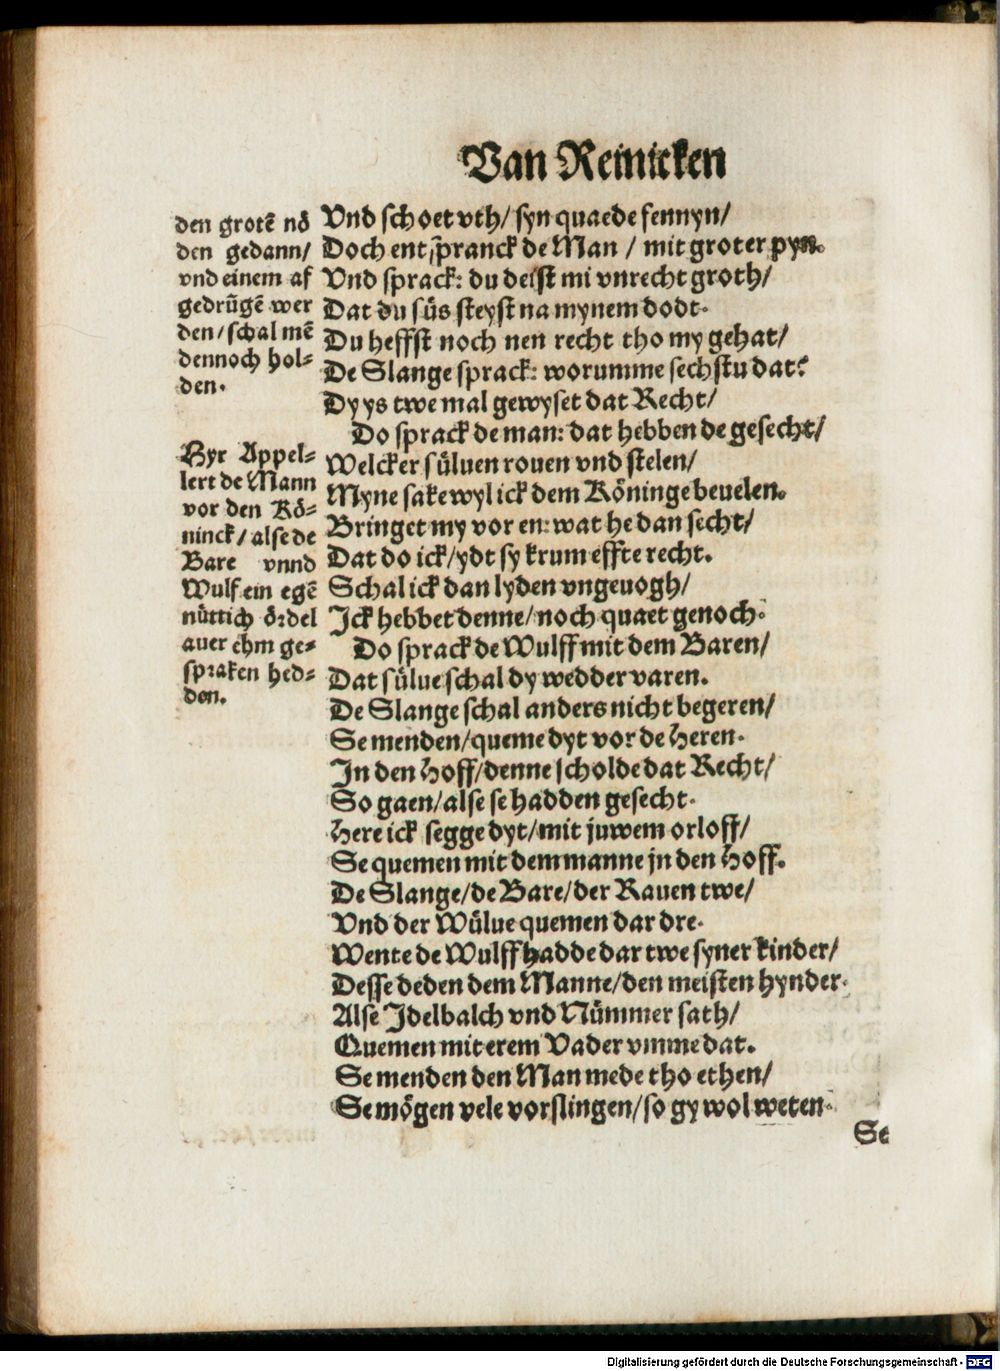 Van Reinicken
den grotē nö
den gedann/
vnd einem af
gedrügē wer
den/schal mē
dennoch hol-
den.
Hyr Appel-
lert de Mann
vor den Kö-
ninck/alse de
Bare vnnd
Wulf ein egē
nüttich ördel
auer ehm ge-
spraken hed-
den.
Vnd schoet vth/syn quaede fennyn/
Doch entspranck de Man / mit groter pyn.
Vnd sprack: du deist mi vnrecht groth/
Dat du süs steyst na mynem dodt.
Du heffst noch nen recht tho my gehat/
De Slange sprack: worumme sechstu dat?
Dy ys twe mal gewyset dat Recht/
Do sprack de man: dat hebben de gesecht/
Welcker süluen rouen vnd stelen/
Myne sake wyl ick dem Köninge beuelen.
Bringet my vor en: wat he dan secht/
Dat do ick/ydt sy krum effte recht.
Schal ick dan lyden vngeuogh/
Ick hebbet denne/noch quaet genoch.
Do sprack de Wulff mit dem Baren/
Dat sülue schal dy wedder varen.
De Slange schal anders nicht begeren/
Se menden/queme dyt vor de Heren.
In den Hoff/denne scholde dat Recht/
So gaen/alse se hadden gesecht.
Here ick segge dyt/mit juwem orloff/
Se quemen mit dem manne jn den Hoff.
De Slange/de Bare/der Rauen twe/
Vnd der Wülue quemen dar dre.
Wente de Wulff hadde dar twe syner kinder/
Desse deden dem Manne/den meisten hynder.
Alse Idelbalch vnd Nümmer sath/
Quemen mit erem Vader vmme dat.
Se menden den Man mede tho ethen/
Se mögen vele vorslingen/so gy wol weten.
Se
Digitalisierung gefördert durch die Deutsche Forschungsgemeinschaft - DFG